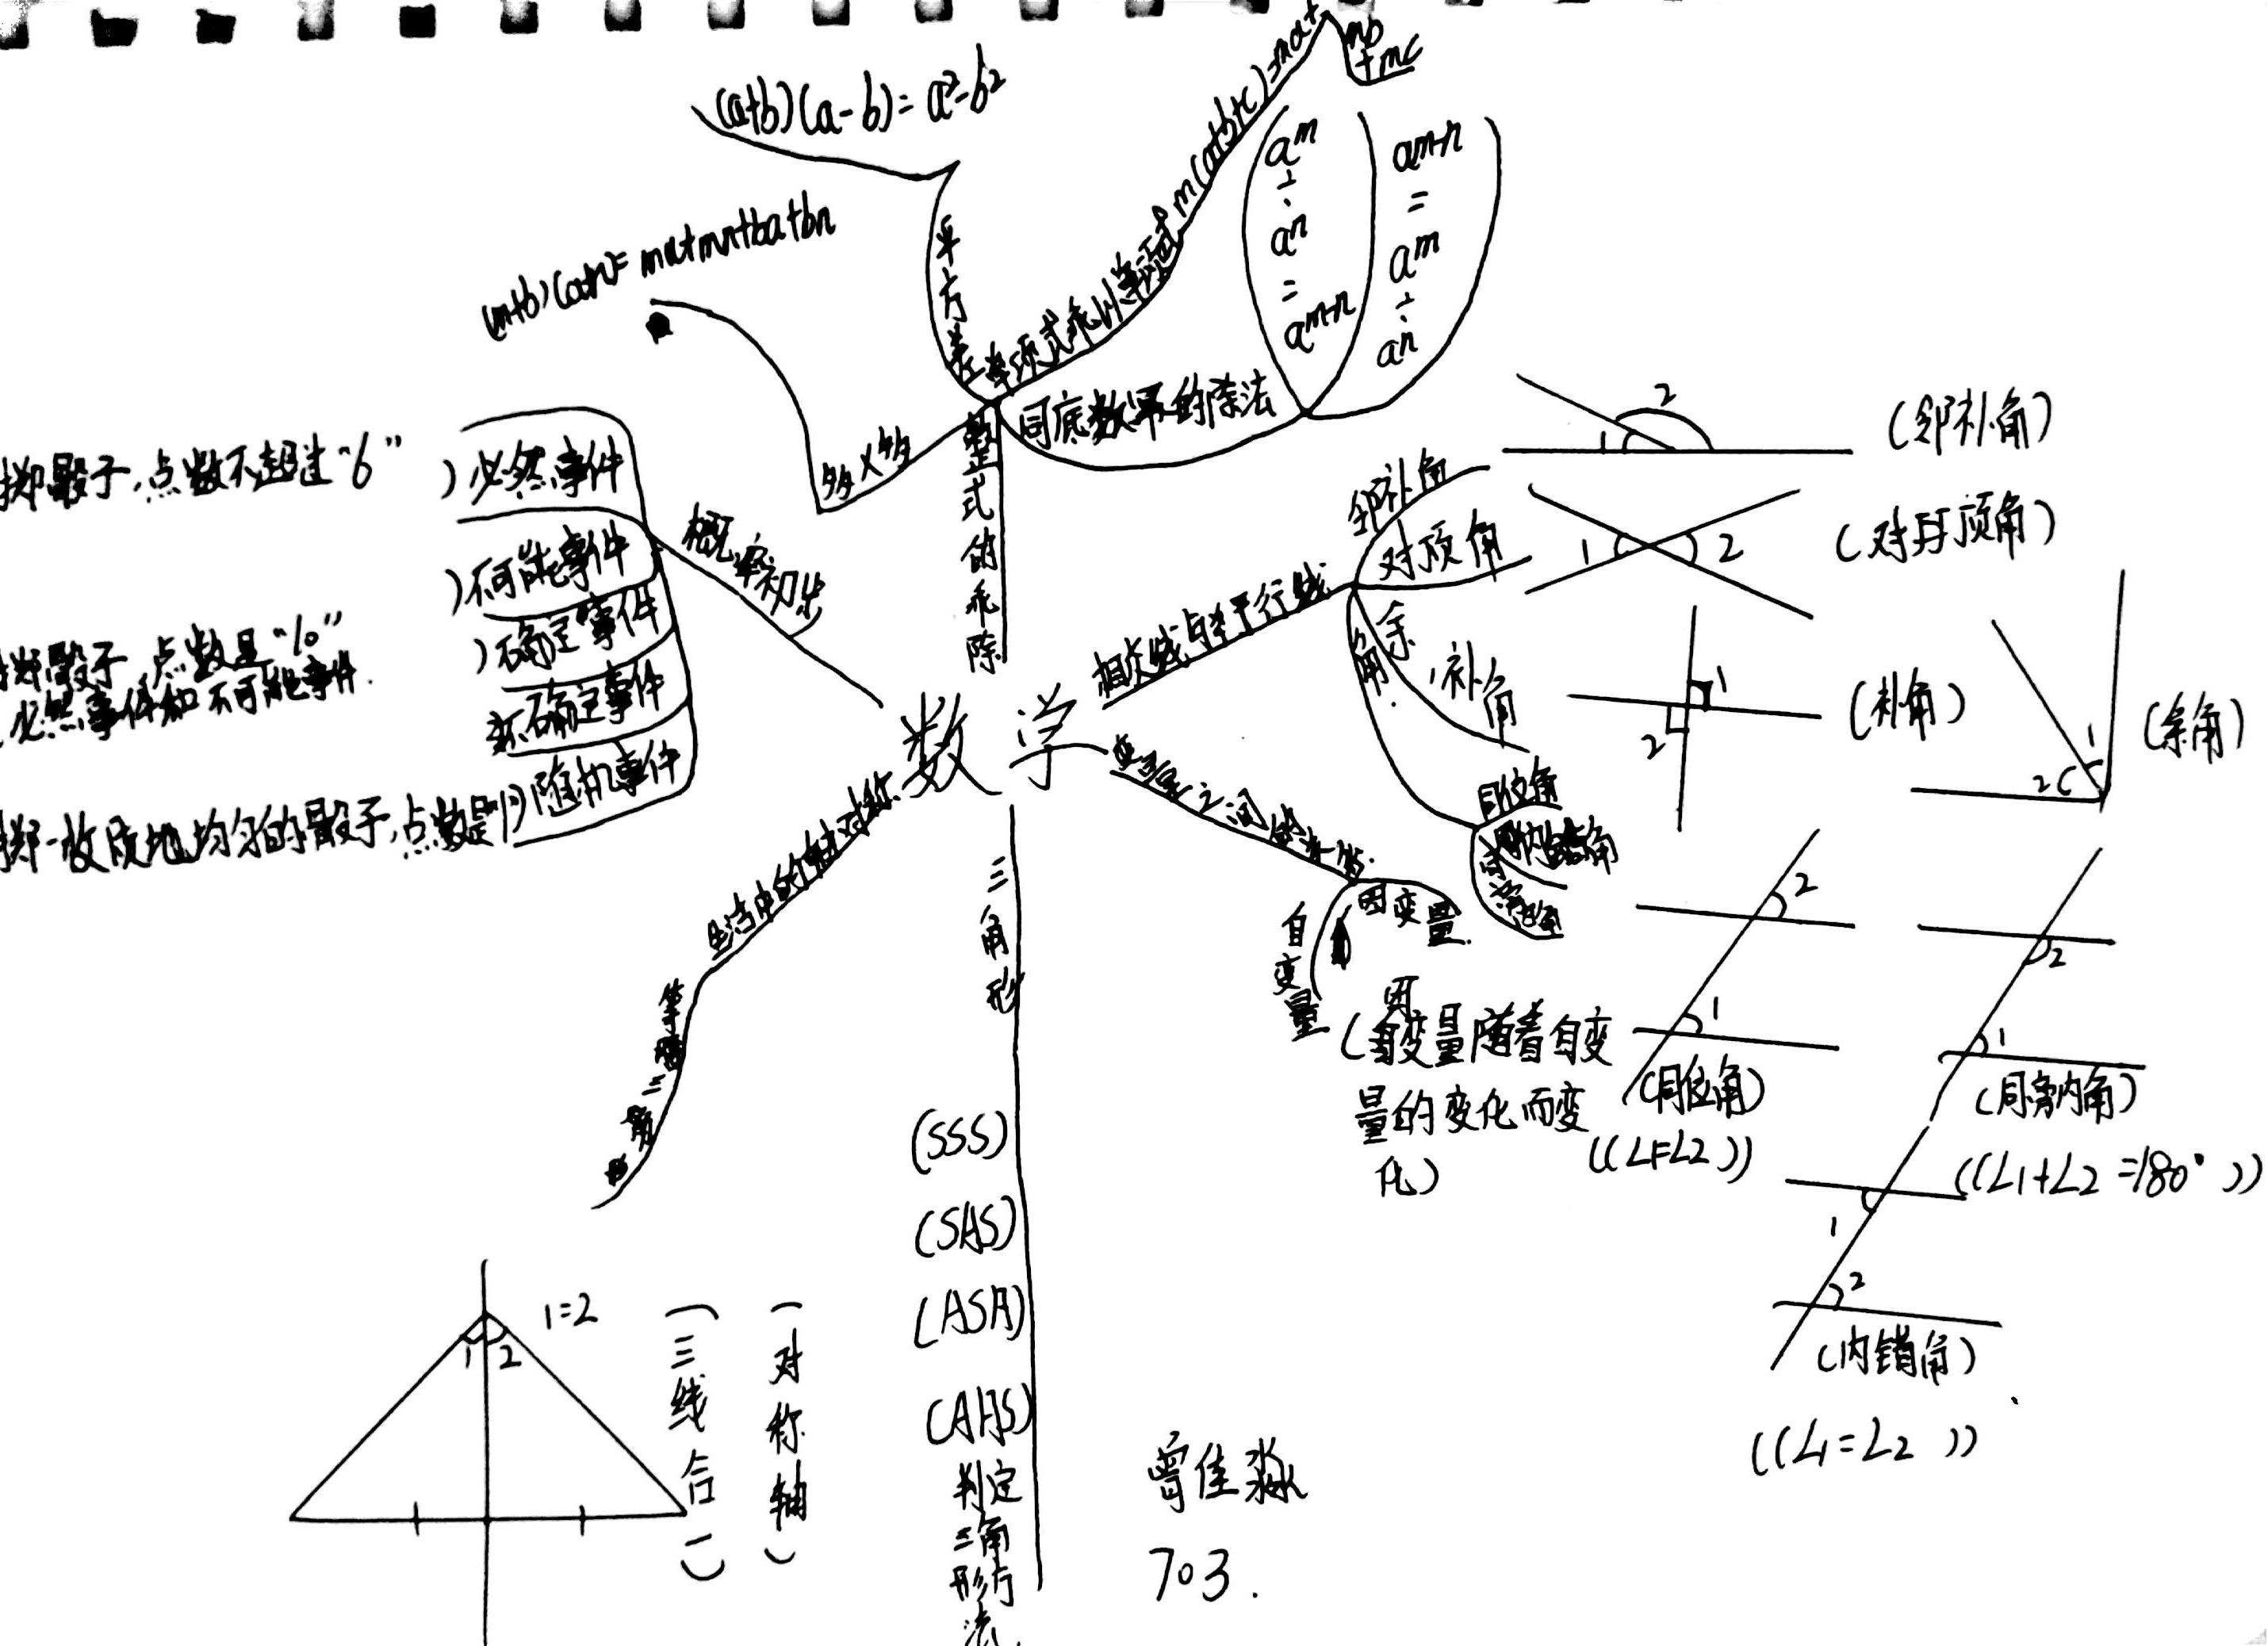 (a+b)(a-b)=a²-b²
平方差
(m+b)(a+n)=ma+mn+ba+bn
多×多
m(a+b+c)=ma+
mb
+mc
aᵐ÷aⁿ=aᵐ⁻ⁿ
aᵐ⁻ⁿ=aᵐ÷aⁿ
同底数幂的除法
整式的乘除
概率初步
掷骰子,点数不超过“6”
)必然事件
)不可能事件
掷骰子,点数是“10”
)确定事件
必然事件和不可能事件.
不确定事件
掷一枚质地均匀的骰子,点数是“1”
)随机事件
数学
相交线与平行线
邻补角
对顶角
余角
补角
同位角
(邻补角)
1 2
(对顶角)
1 2
(补角)
1 2
(余角)
1 2
变量之间的关系
自变量
因变量
(因变量随着自变
量的变化而变
化)
1 2
(同位角)
((∠1=∠2))
1 2
(同旁内角)
((∠1+∠2=180°))
1 2
(内错角)
((∠1=∠2))
生活中的轴对称
等腰三角形
1=2
1 2
(三线合一)
(对称轴)
三角形
(SSS)
(SAS)
(ASA)
(AAS)
判定
三角
形方
法
曾佳淼
703.